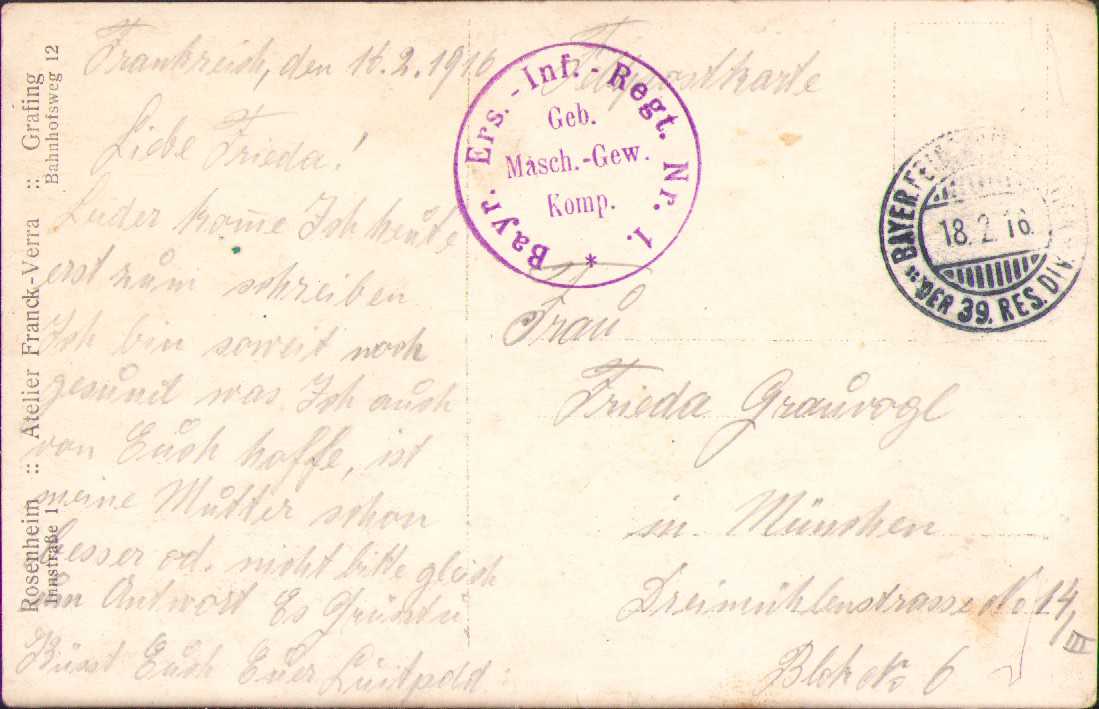 Rosenheim :: Atelier Franck-Verra :: Grafing
Innstraße 1 Bahnhofsweg 12
Frankreich, den 16.2.1916 Feldpostkarte
Liebe Frieda!
Leider kom̅e Ich heute
erst zum schreiben
Ich bin soweit noch
gesund was Ich auch
von Euch hoffe, ist
meine Mutter schon
besser od. nicht bitte gleich
um Antwort Es Grüßt u
Küsst Euch Euer Luitpold.
Bayr. Ers.-Inf.-Regt. Nr. 1.
Geb.
Masch.-Gew.
Komp.
*
BAYER.
18.2.16.
DER 39. RES. DIV
Frau
Frieda Grauvogl
in München
Dreimühlenstrasse No 14/III
Blok No 6